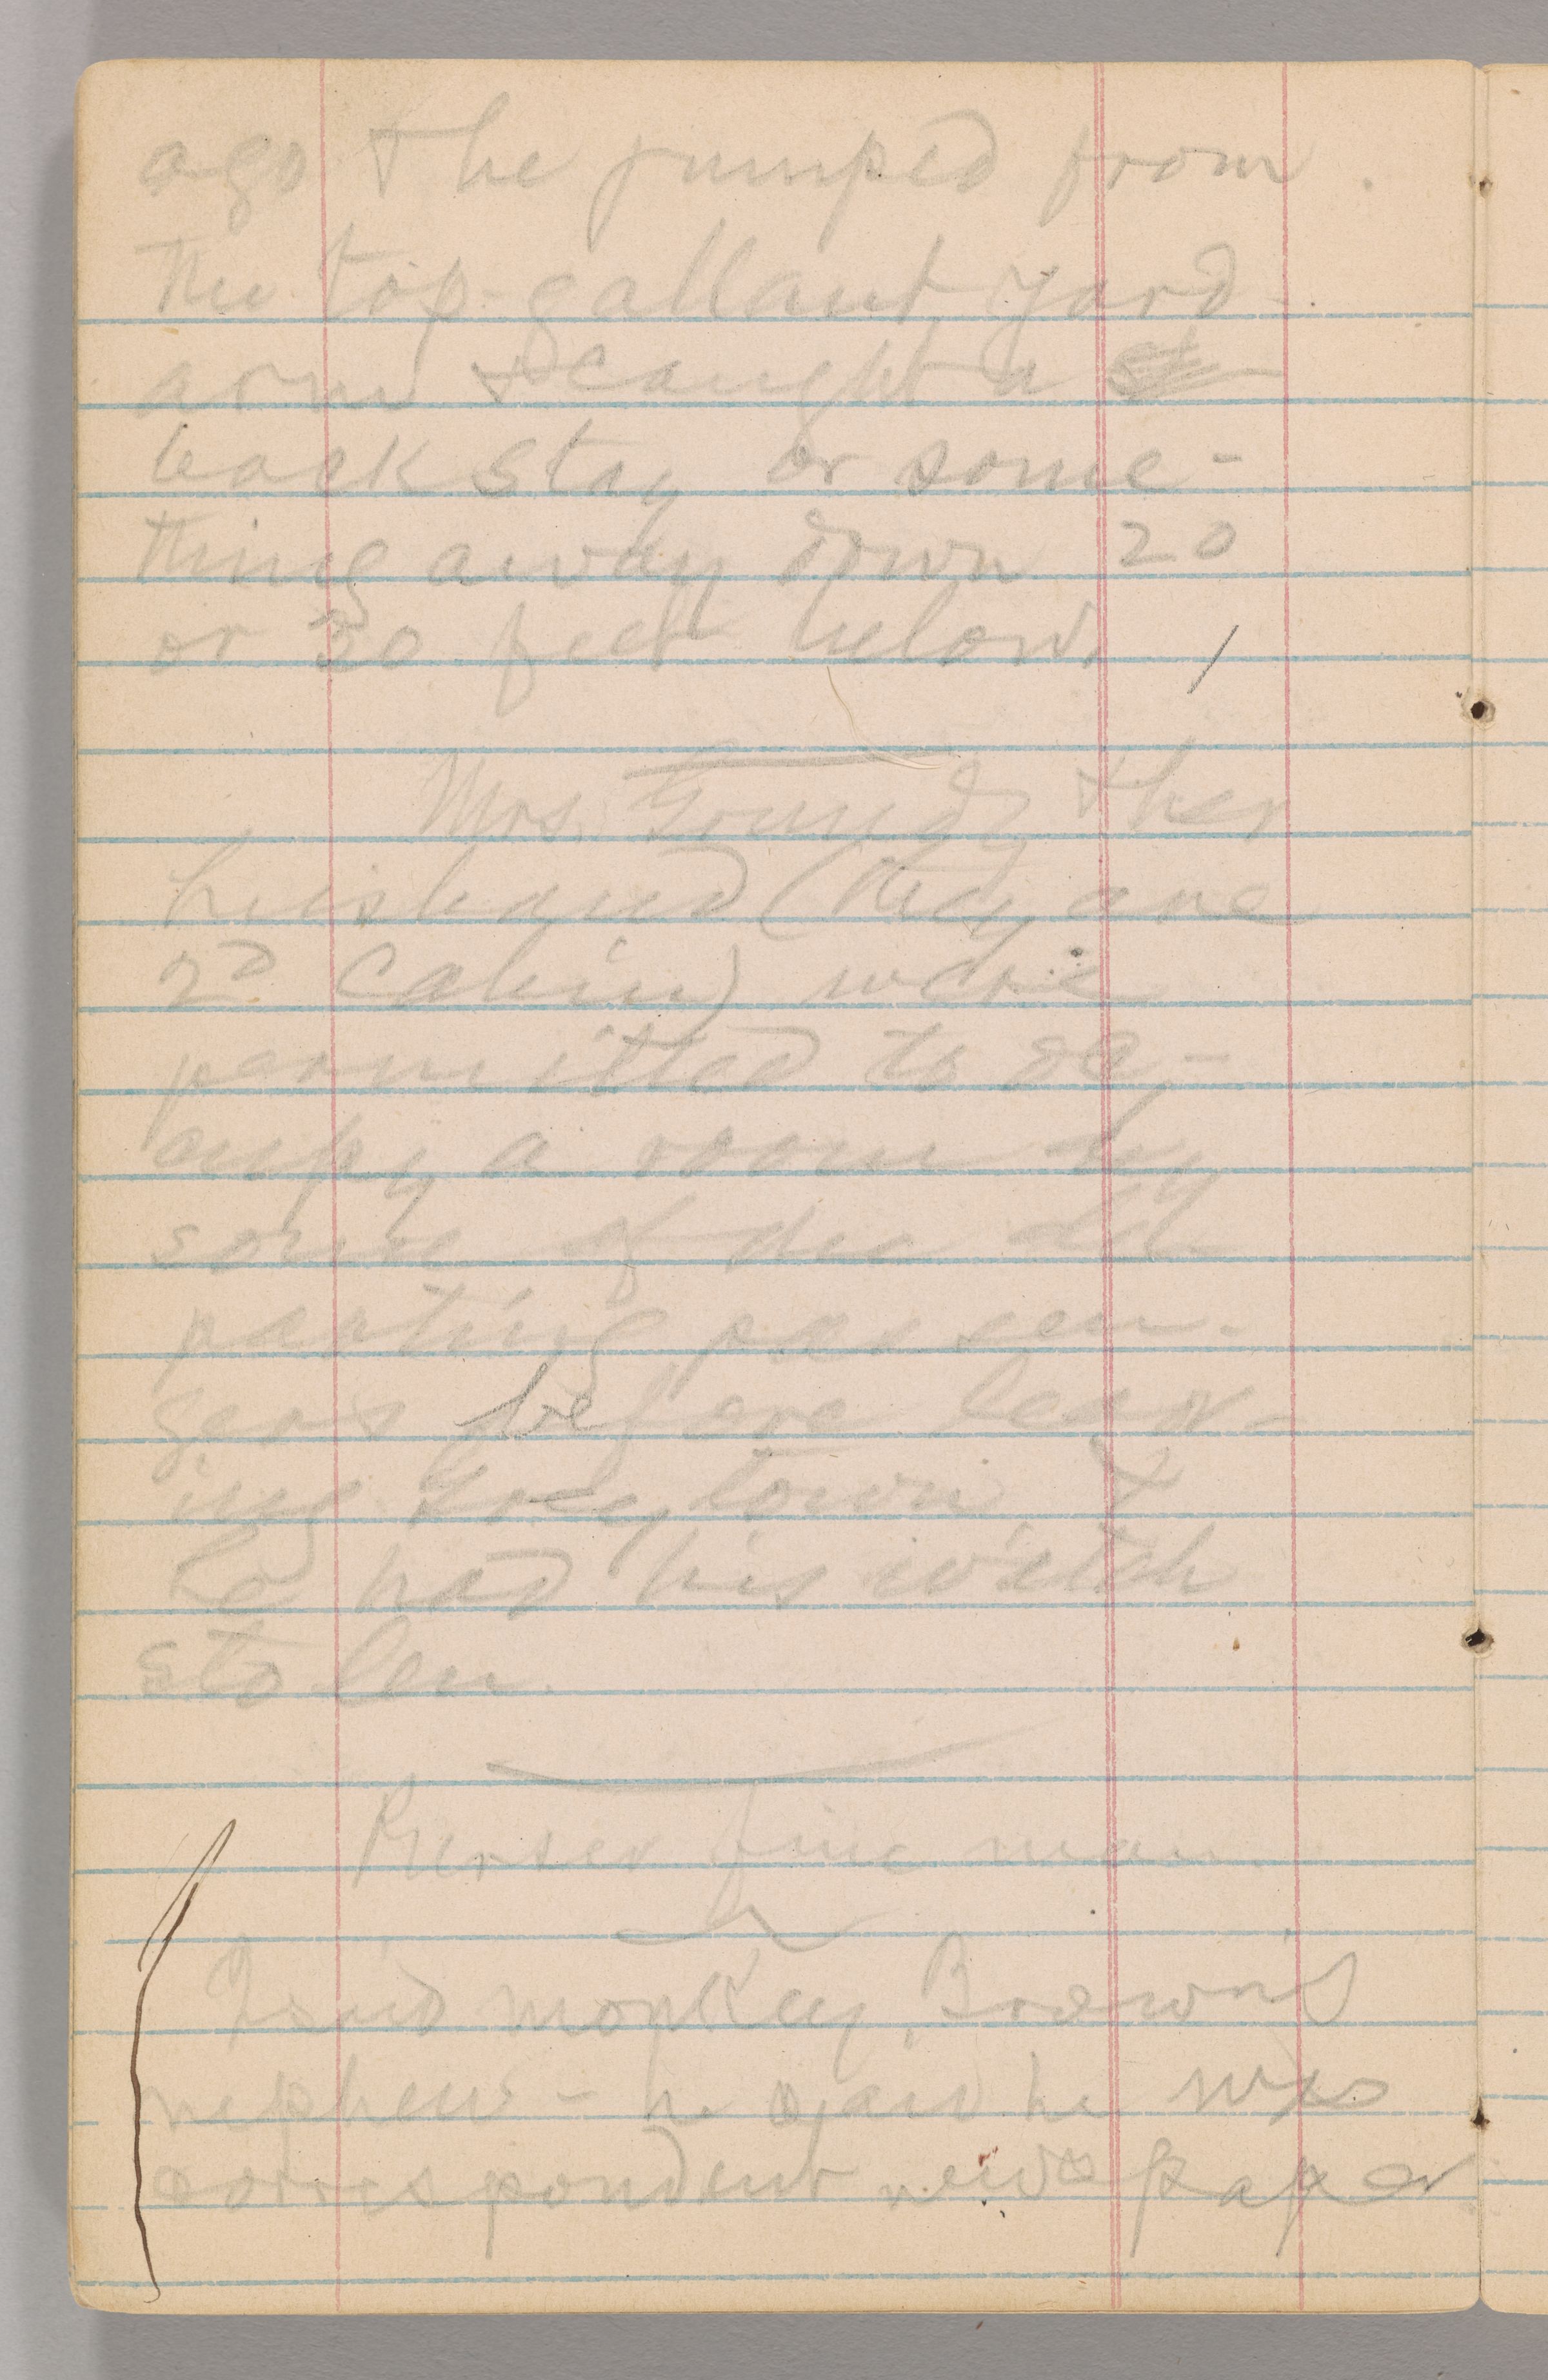 ago & he jumped from
the top-gallant yard-
arm & caught a st
back stay or some-
thing away down 20
or 30 feet below.
Mrs. Grundy & her
husband (they are
2d cabin) were
permitted to oc-
cupy a room by
some of the de-
parting passen-
gers before leav-
ing Greytown, &
he had his watch
stolen.
Purser fine man.
monkey, Brown's
nephew - he & he was
correspondent newspaper